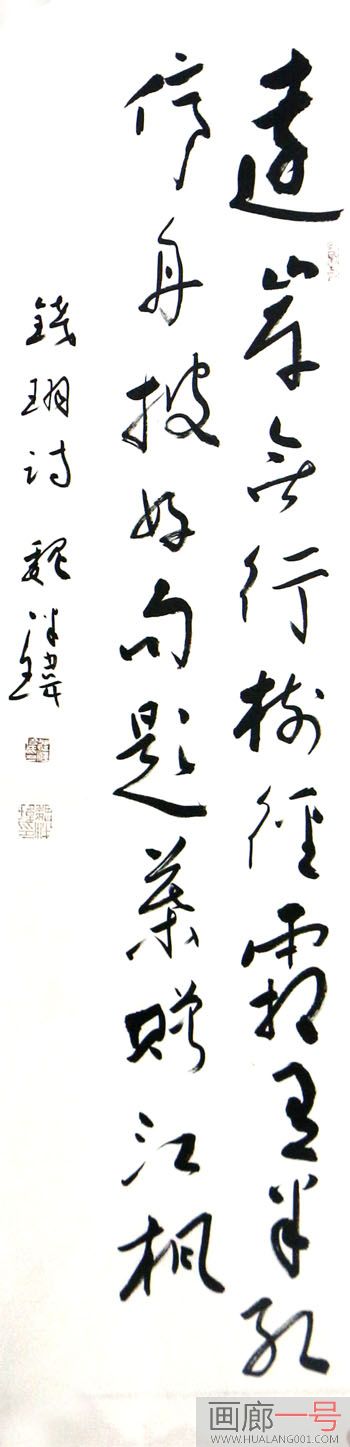 遠岸無行樹徑霜有半紅
停舟披好句題葉贈江枫
錢珝詩 魏瑋
画廊一号
WWW.HUALANG001.COM